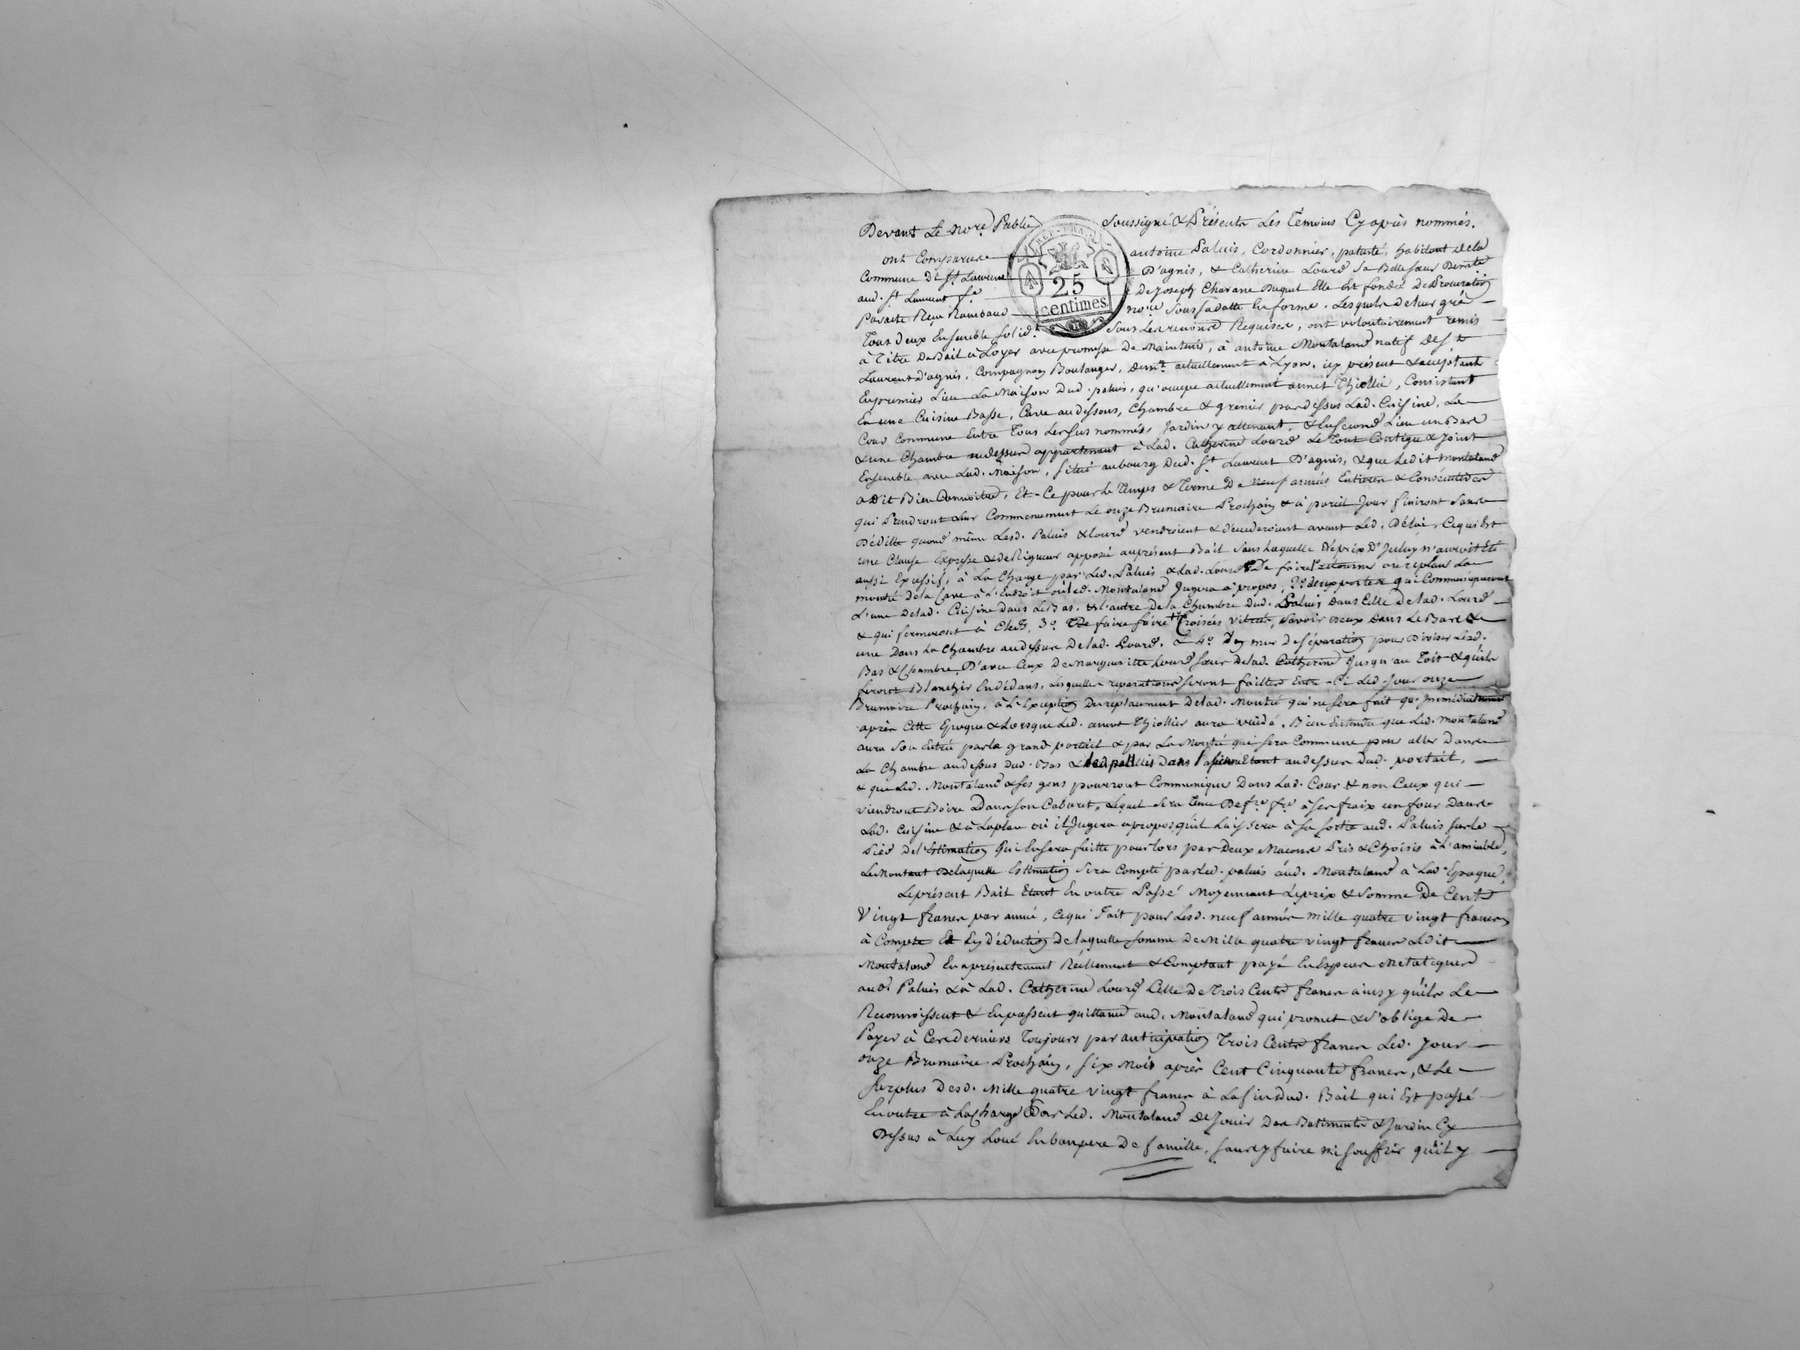 Devant Le Nore. Public soussigné & Présents Les Témoins Cy après nommés.
REP. FRA.
25
centimes.
ont Comparus antoine Paluis, Cordonnier, patenté, habitant de la
Commune de St. Laurent D'agnis, & Catherine Lourd sa Belle sœur Demte
aud. St Laurent fe. De Joseph Charane Duquel Elle Est fondée De Procuration
Passée Reçu Raimbaud nore soussadatte En forme. Lesquels de leur gré
Tous deux Ensemble solidt. Sous Les renonces Requises, ont volontairement remis
à Titre De Bail à Loyer avec promesse De Maintenir, à antoine Montaland natif De St
Laurent d'agnis, Compagnon Boulanger, demt. actuellement à Lyon, icy présent & acceptant
En premier Lieu La Maison Dud. paluis, qu'occupe actuellement annet Thiollier, Consistant
En une Cuisine Basse, Cave au dessous, Chambre & grenier par dessus Lad. Cuisine, La
Cour Commune Entre Tous Les sus nommés, Jardin y attenant, & En second Lieu un Bas
& une Chambre au dessus appartenant à Lad. Catherine Lourd Le Tout Contigu & Joint
Ensemble avec Lad. Maison, situé au bourg Dud. St Laurent D'agnis, & que Ledit Montaland
a Dit Bien Connoitre, Et Ce pour le Temps & Terme De Neuf années Entieres & Consécutives
qui Prendront Leur Commencement Le onze Brumaire Prochain & à pareil Jour finiront sans
Déditte quand même Lesd. Paluis & Lourd vendroient & décederoient avant Led. Délai, Ce qui Est
une Clause Expresse & de Rigueur apposée au présent Bail sans Laquelle Le prix D'Iceluy n'auroit Eté
aussi Excessif, à La Charge par Led. Paluis & Lad. Lourd 1° De faire retourner ou replacer La
montée de la Cave à L'Endroit où Led. Montaland Jugera à propos, 2° deux portes qui Communiqueront
L'une De lad. Cuisine dans Le Bas, & L'autre de la Chambre Dud. Paluis dans Celle De lad. Lourd
& qui fermeront à Clefs, 3° De faire faire Trois Croisées vitrées, savoir Deux dans Le Bas &
une Dans La Chambre au dessus De lad. Lourd, & 4° Un mur De séparation pour Diviser Lesd.
Bas & Chambre D'avec Ceux De Marguerite Lourd sœur De lad. Catherine Jusqu'au Toit & qu'ils
feront Blanchir En dedans, Lesquelles reparations seront faittes Entre Ci Led. Jour onze
Brumaire Prochain, à L'Exception Du replacement De lad. Montée qui ne sera fait qu'Immédiatement
après Cette Epoque & Lorsque Led. annet Thiollier aura vuidé. Bien Entendu que Led. Montaland
aura son Entrée par le grand portail & par La Montée qui sera Commune pour aller Dans
La Chambre au dessus Dud. Bas & Led. palluis dans la sienne Etant au dessus Dud. portail,
& que Led. Montaland & ses gens pourront Communiquer Dans Lad. Cour & non Ceux qui
viendront Boire Dans son Cabaret, Lequel sera Tenu De fre. fre. à ses fraix un four Dans
Lad. Cuisine & à La place où il Jugera a propos qu'il Laissera à sa sortie aud. Paluis sur le
Pied De L'Estimation qui En sera faitte pour Lors par Deux Macons Pris & Choisis à L'amiable,
Le Montant De laquelle Estimation sera Compté par Led. paluis aud. Montaland à Lad. Epoque.
Le présent Bail Etant En outre Passé Moyennant Le prix & somme De Cent
Vingt francs par année, Ce qui Fait pour Lesd. neuf années mille quatre vingt francs
à Compte Et En Déduction de laquelle somme De Mille quatre vingt francs Ledit
Montaland En a présentement Réellement & Comptant payé En Especes Metalliques
aud. Paluis & à Lad. Catherine Lourd Celle De Trois Cents francs ainsy qu'ils Le
Reconnoissent & En passent quittance aud. Montaland qui promet & s'oblige De
Payer à Ces derniers Toujours par anticipation Trois Cents francs Led. Jour
onze Brumaire Prochain, six Mois après Cent Cinquante francs, & Le
surplus Desd. Mille quatre vingt francs à La fin Dud. Bail qui Est passé
En outre à La Charge Par Led. Montaland De Jouir Des Batiments & Jardin Cy
Dessus à Luy Loué En bon pere De famille, sans y faire ni souffrir qu'il y